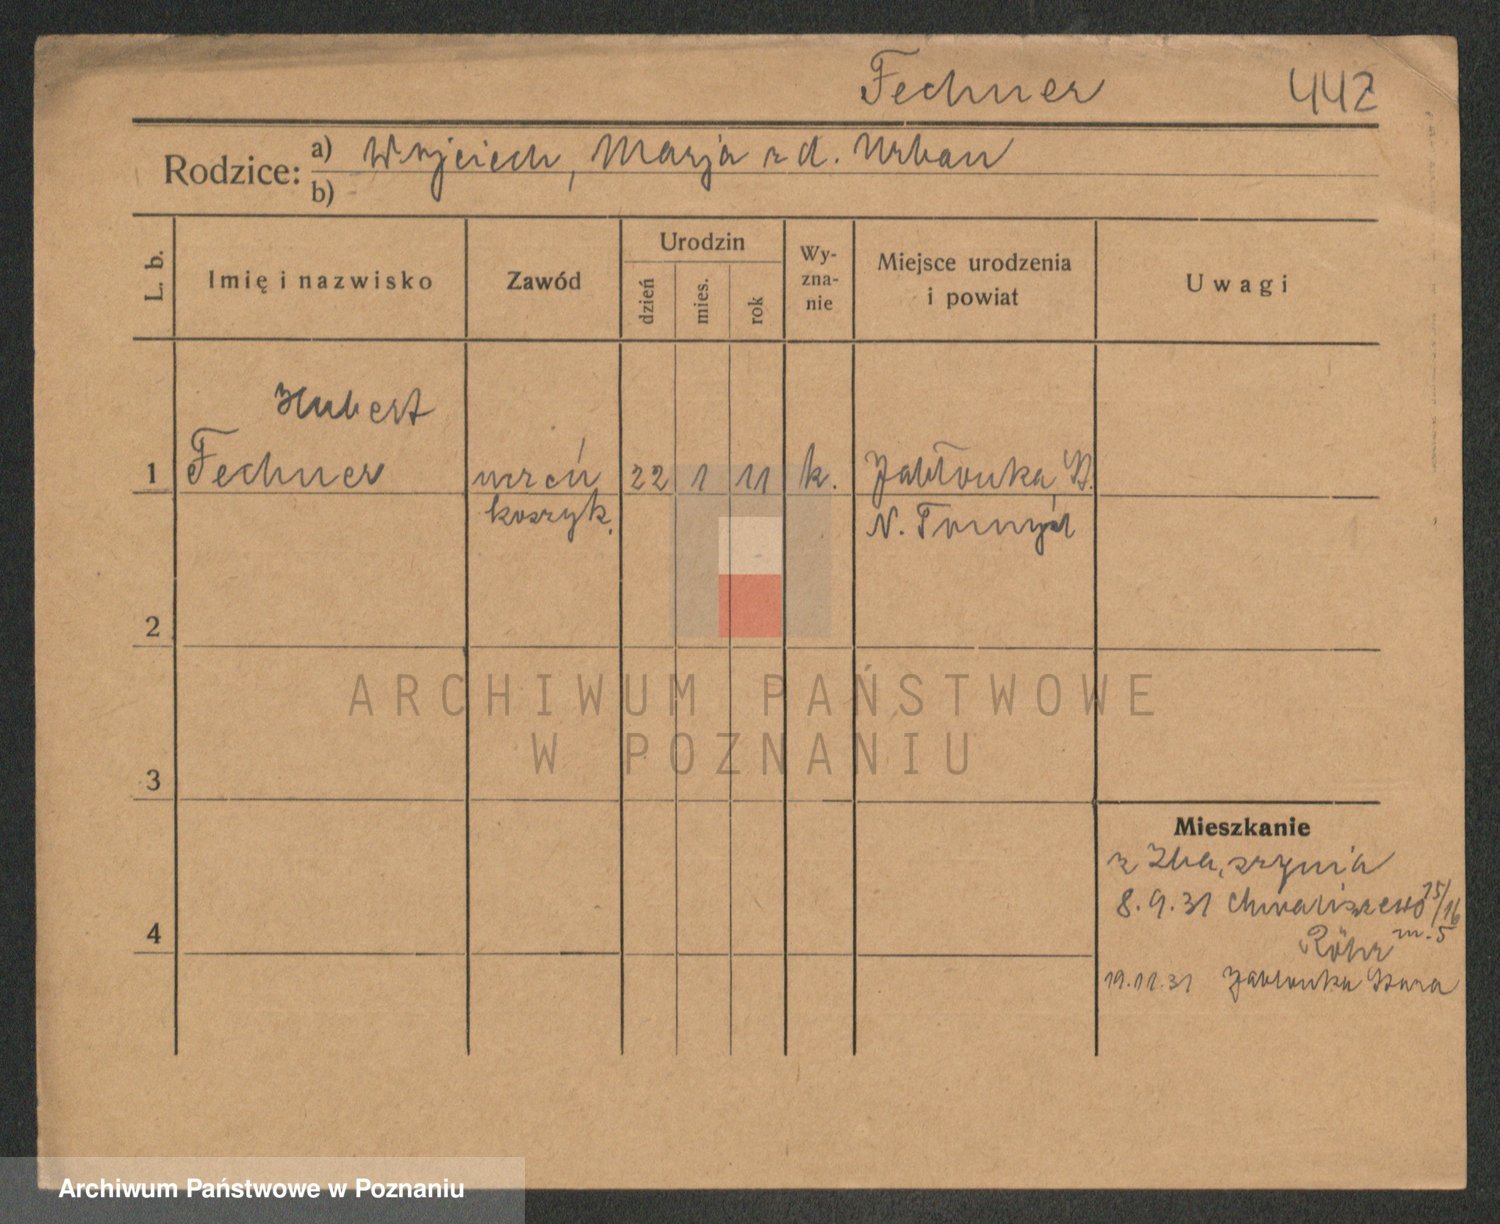 Fechner 442
Rodzice: a) Wojciech, Marja z d. Urban
b)
L. b.
Imię i nazwisko
Zawód
Urodzin
dzień
mies.
rok
Wy-
zna-
nie
Miejsce urodzenia
i powiat
Uwagi
Hubert
1 Fechner uczeń 22 1 11 k. Jabłonka St.
koszyk. N. Tomyśl
2
3
4
Mieszkanie
z Zbąszynia
8.9.31 Chwaliszewo 15/16
Röhr m. 5
19.11.31 Jabłonka Stara
ARCHIWUM PAŃSTWOWE
W POZNANIU
Archiwum Państwowe w Poznaniu